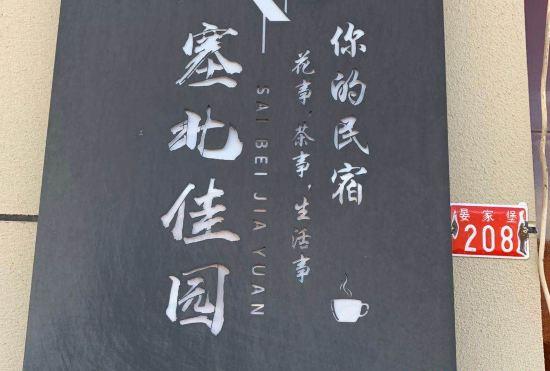 你的民宿
花事,茶事,生活事
SAI BEI JIA YUAN
塞北佳园
晏家堡
208